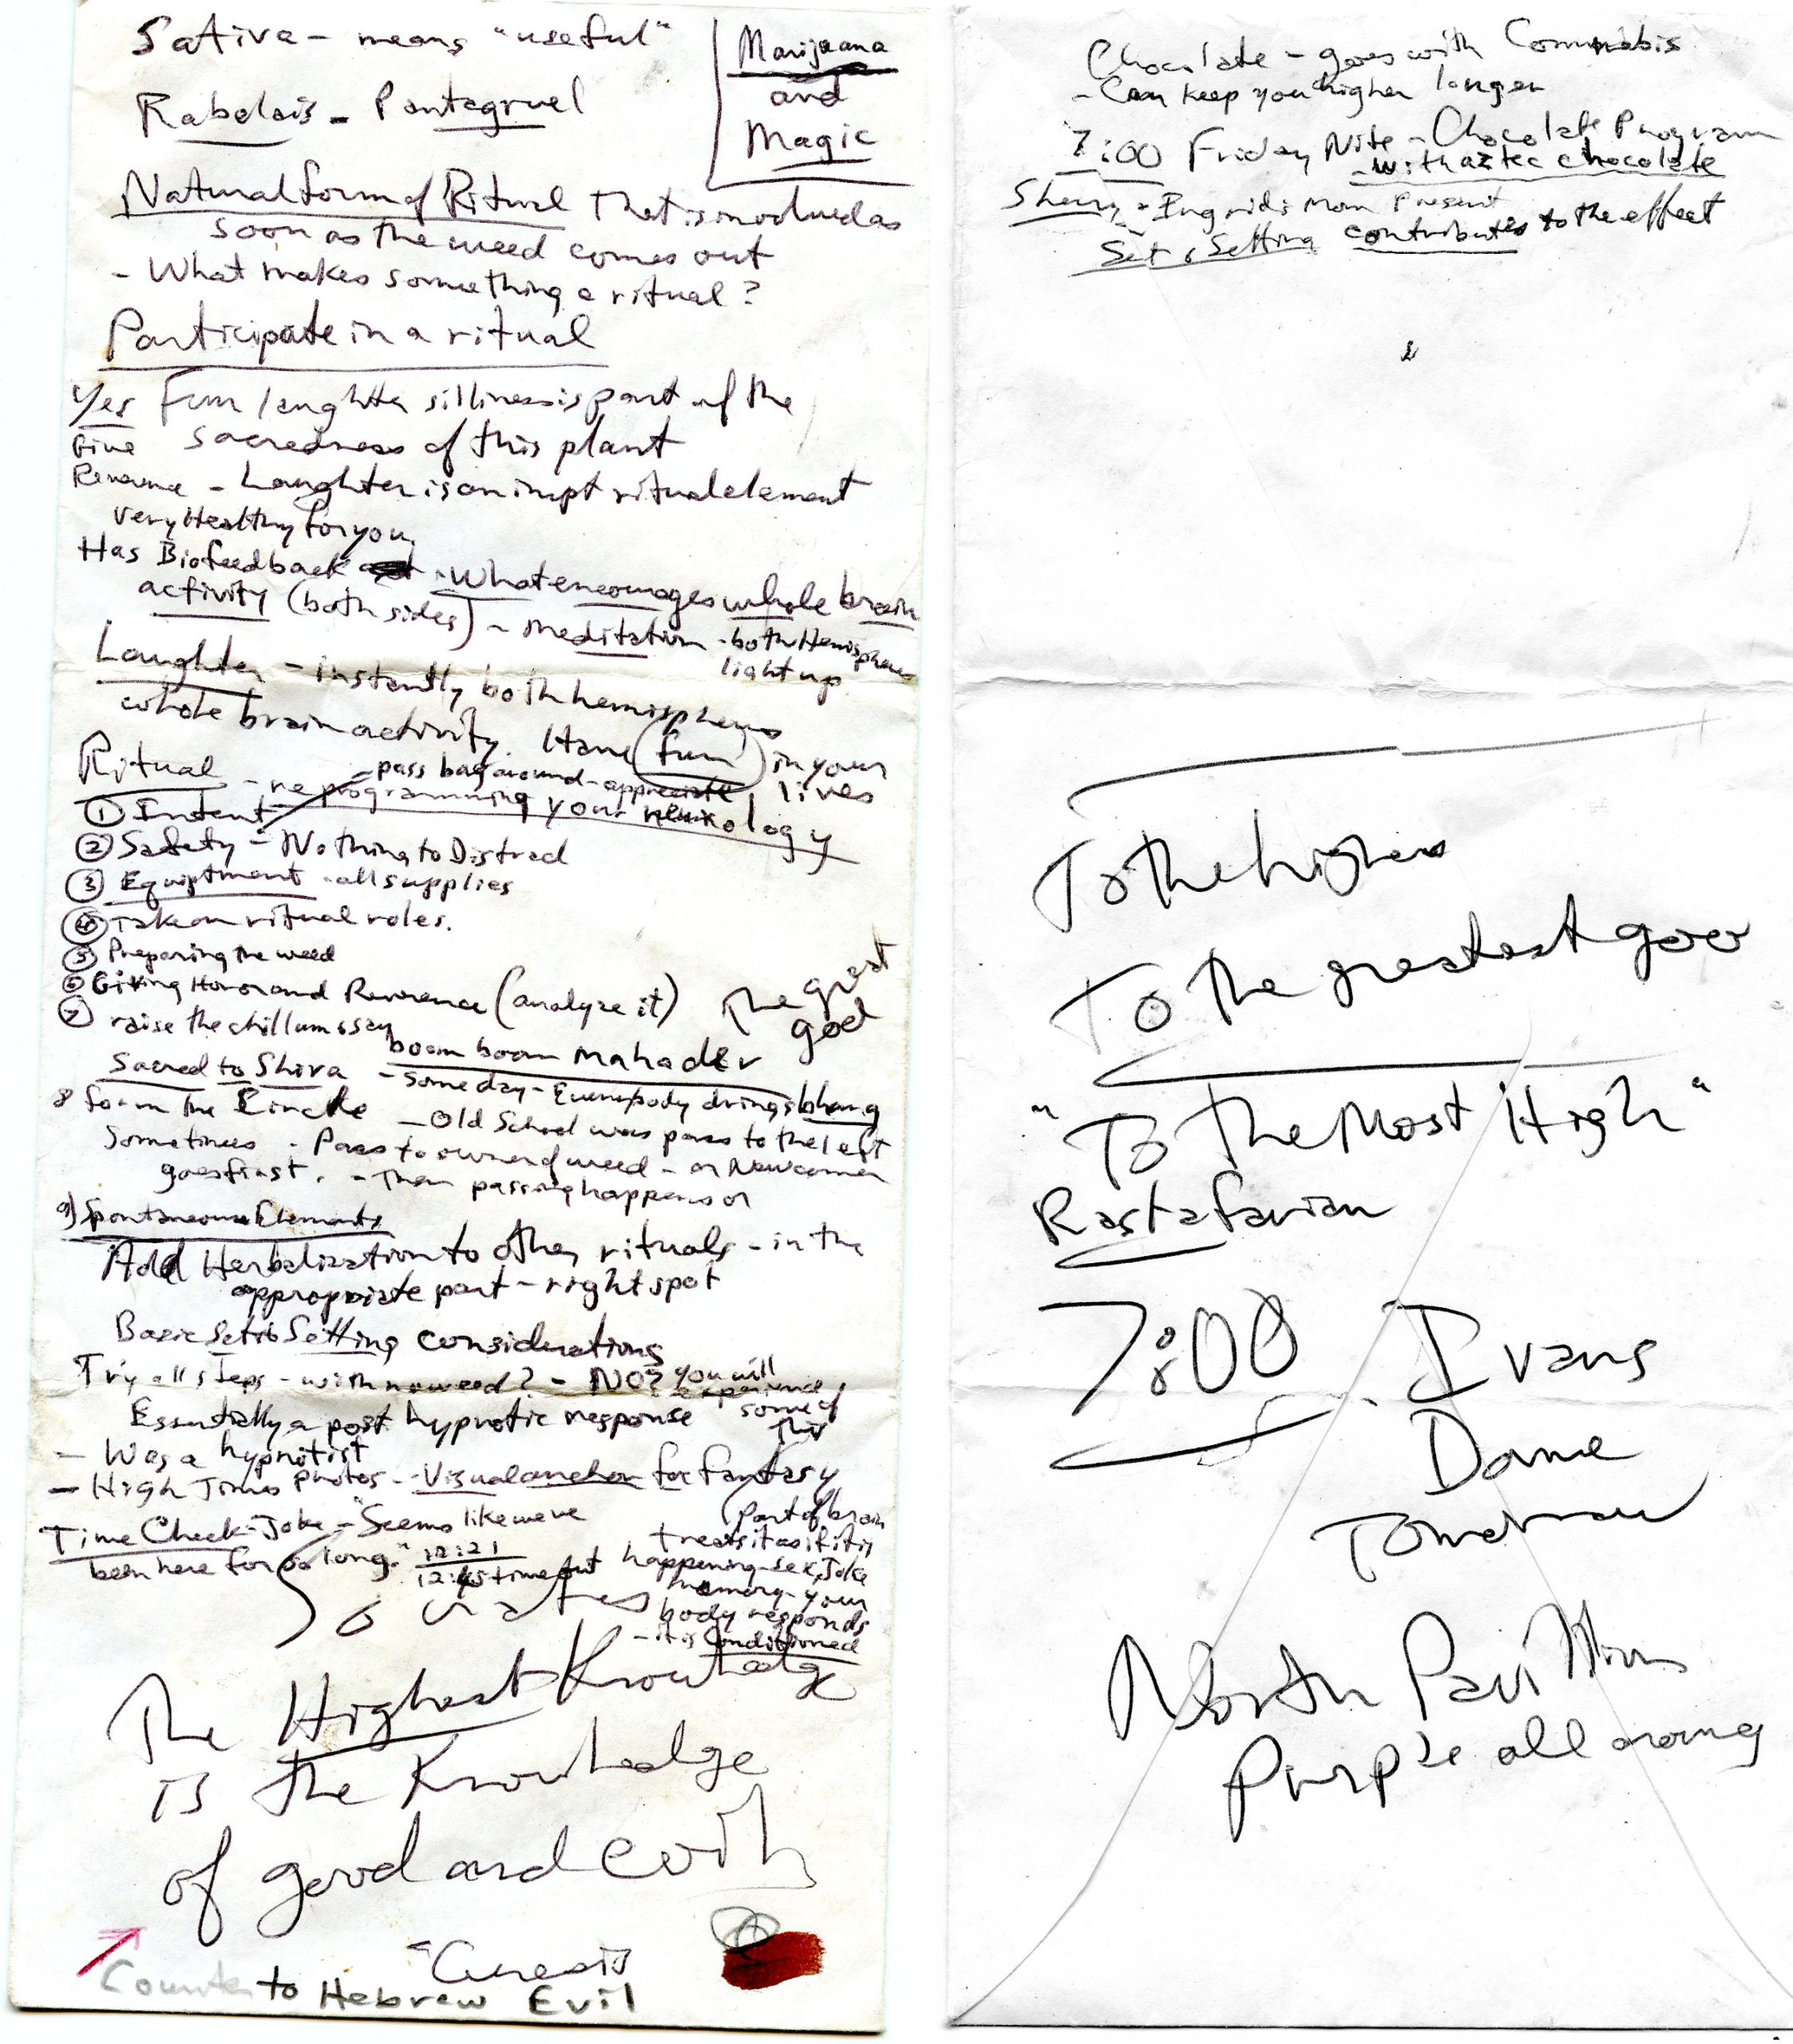 Sativa - means "useful"
Marijuana
and
Magic
Rabelais - Pantagruel
Natural form of Ritual that is involved as
soon as the weed comes out
- What makes something a ritual?
Participate in a ritual
Yes Fun laughter silliness is part of the
Give sacredness of this plant
Reverence - Laughter is an impt ritual element
very Healthy for you
Has Biofeedback - What encourages whole brain
activity (both sides) - meditation - both Hemispheres
light up
Laughter - instantly both hemispheres
whole brain activity. Have (fun) in your
lives
Ritual - reprogramming your neurology
- pass bag around - appreciate
① Intent
② Safety - Nothing to Distract
③ Equiptment - all supplies
④ Take on ritual roles.
⑤ Preparing the weed
⑥ Giving Honor and Reverence (analyze it)
⑦ raise the chillum & say
boom boom Mahadev
The great
god
Sacred to Shiva - some day - Everybody drings bhang
8 form the Circle - Old School was pass to the left
Sometimes - Pass to owner of weed - or Newcomer
goes first. - Then passing happens or
9) Spontaneous Elements
Add Herbalization to other rituals - in the
appropriate part - right spot
Basic Set & Setting considerations
Try all steps - with no weed? - NO? you will
experience
some of
this
Essentially a post hypnotic response
- Was a hypnotist
- High Times photos - Visual anchor for fantasy
(part of brain
treats it as if it is
happening - sex, Joke
memory - your
body responds
- it is Conditioned
Time Check - Joke - "Seems like we've
been here for so long." 12:21
12:45 time out
Socrates
The Highest Knowledge
is the Knowledge
of good and evil
"Genesis
Counter to Hebrew Evil
Chocolate - goes with Cannabis
- Can keep you higher longer
7:00 Friday Nite - Chocolate Program
- with aztec chocolate
- Ingrid's Mom Present
Set & Setting contributes to the effect
To the highers
To the greatest good
"To The Most High"
Rastafarian
7:00 - Ivans
Dome
Tomorrow
North Pavillion
Purple all around